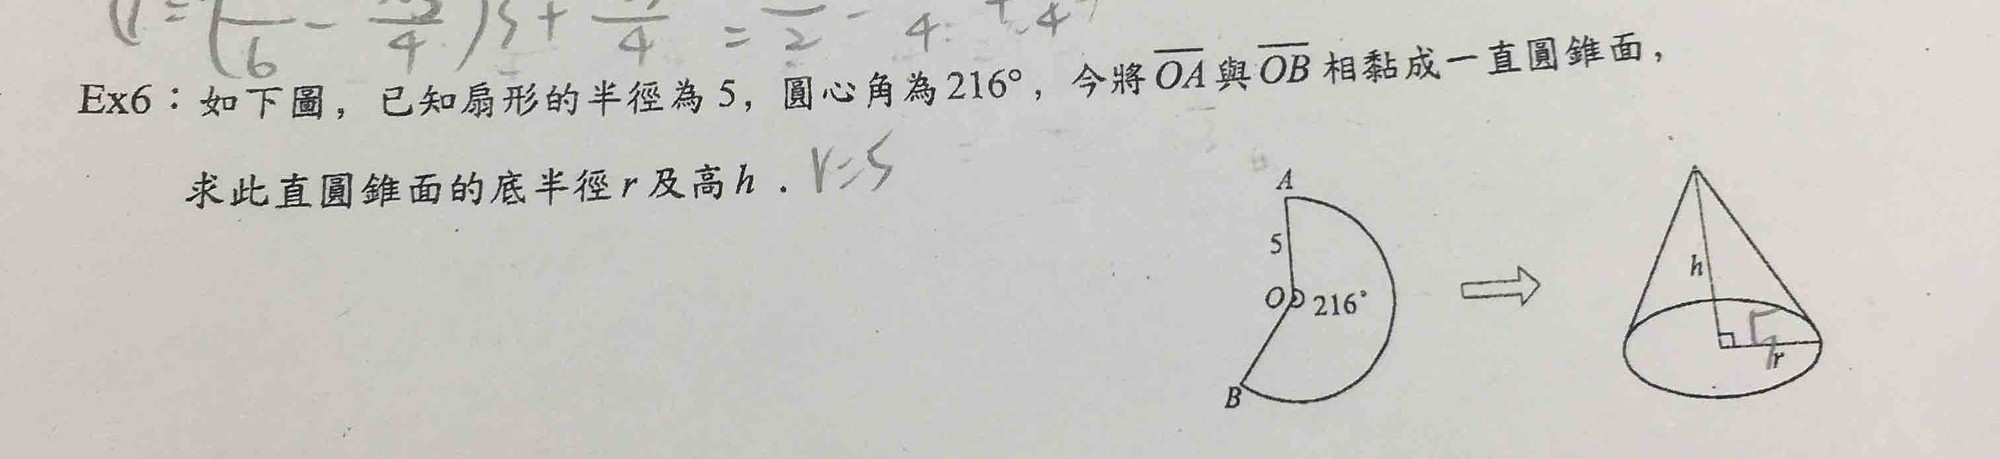 6 4 4 = 2 - 4 + 4
Ex6：如下圖，已知扇形的半徑為 5，圓心角為 216°，今將 OA 與 OB 相黏成一直圓錐面，
求此直圓錐面的底半徑 r 及高 h． r=5
A
5
O 216°
B
h
5
r